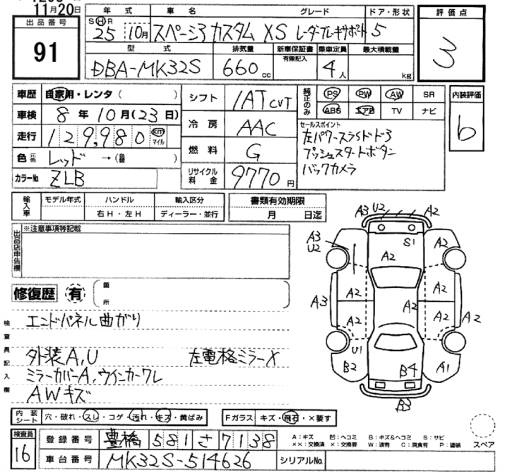 11月20日
出品番号
91
年式 車名 グレード ドア・形状
S H R
25 10月 スペーシアカスタム XS レーダーブレーキサポート 5
型式 排気量 新車保証書 乗車定員 最大積載量
DBA-MK32S 660cc 有無記入 4人 kg
評価点
3
車歴 自家用・レンタ( )
車検 8年10月(23日)
走行 129,980 km マイル
色 レッド→( )
カラーNo ZLB
シフト IAT CVT
冷房 AAC
燃料 G
リサイクル料金 9770円
純正のみ PS PW AW SR
ABS エアB TV ナビ
セールスポイント
左パワースライドドア
プッシュスタートボタン
バックカメラ
内装評価
b
輸入車 モデル年式 ハンドル 輸入区分
右H・左H ディーラー・並行
書類有効期限
月 日迄
出品店申告欄
※注意事項等記載
修復歴 有 箇所
検査員記入欄
エンドパネル曲がり
外装A,U 左電格ミラーX
ミラーカバーA,ウインカーワレ
AWキズ
A3 U2 A2
A3 U2 S1 A2
A2
A2 A2
A3 A2 A2 A2
A2 A2
U1
B2 B4 A1
B3
スペア
内装シート 穴・破れ・スレ・コゲ・汚れ・キズ・黄ばみ
Fガラス キズ・飛石・×要す
検査員
16
登録番号 豊橋 581さ7138
車台番号 MK32S-514626 シリアルNo.
A:キズ U:ヘコミ B:キズ&ヘコミ S:サビ
××:交換済 X:要交換 W:波有 C:腐食有 P:塗装